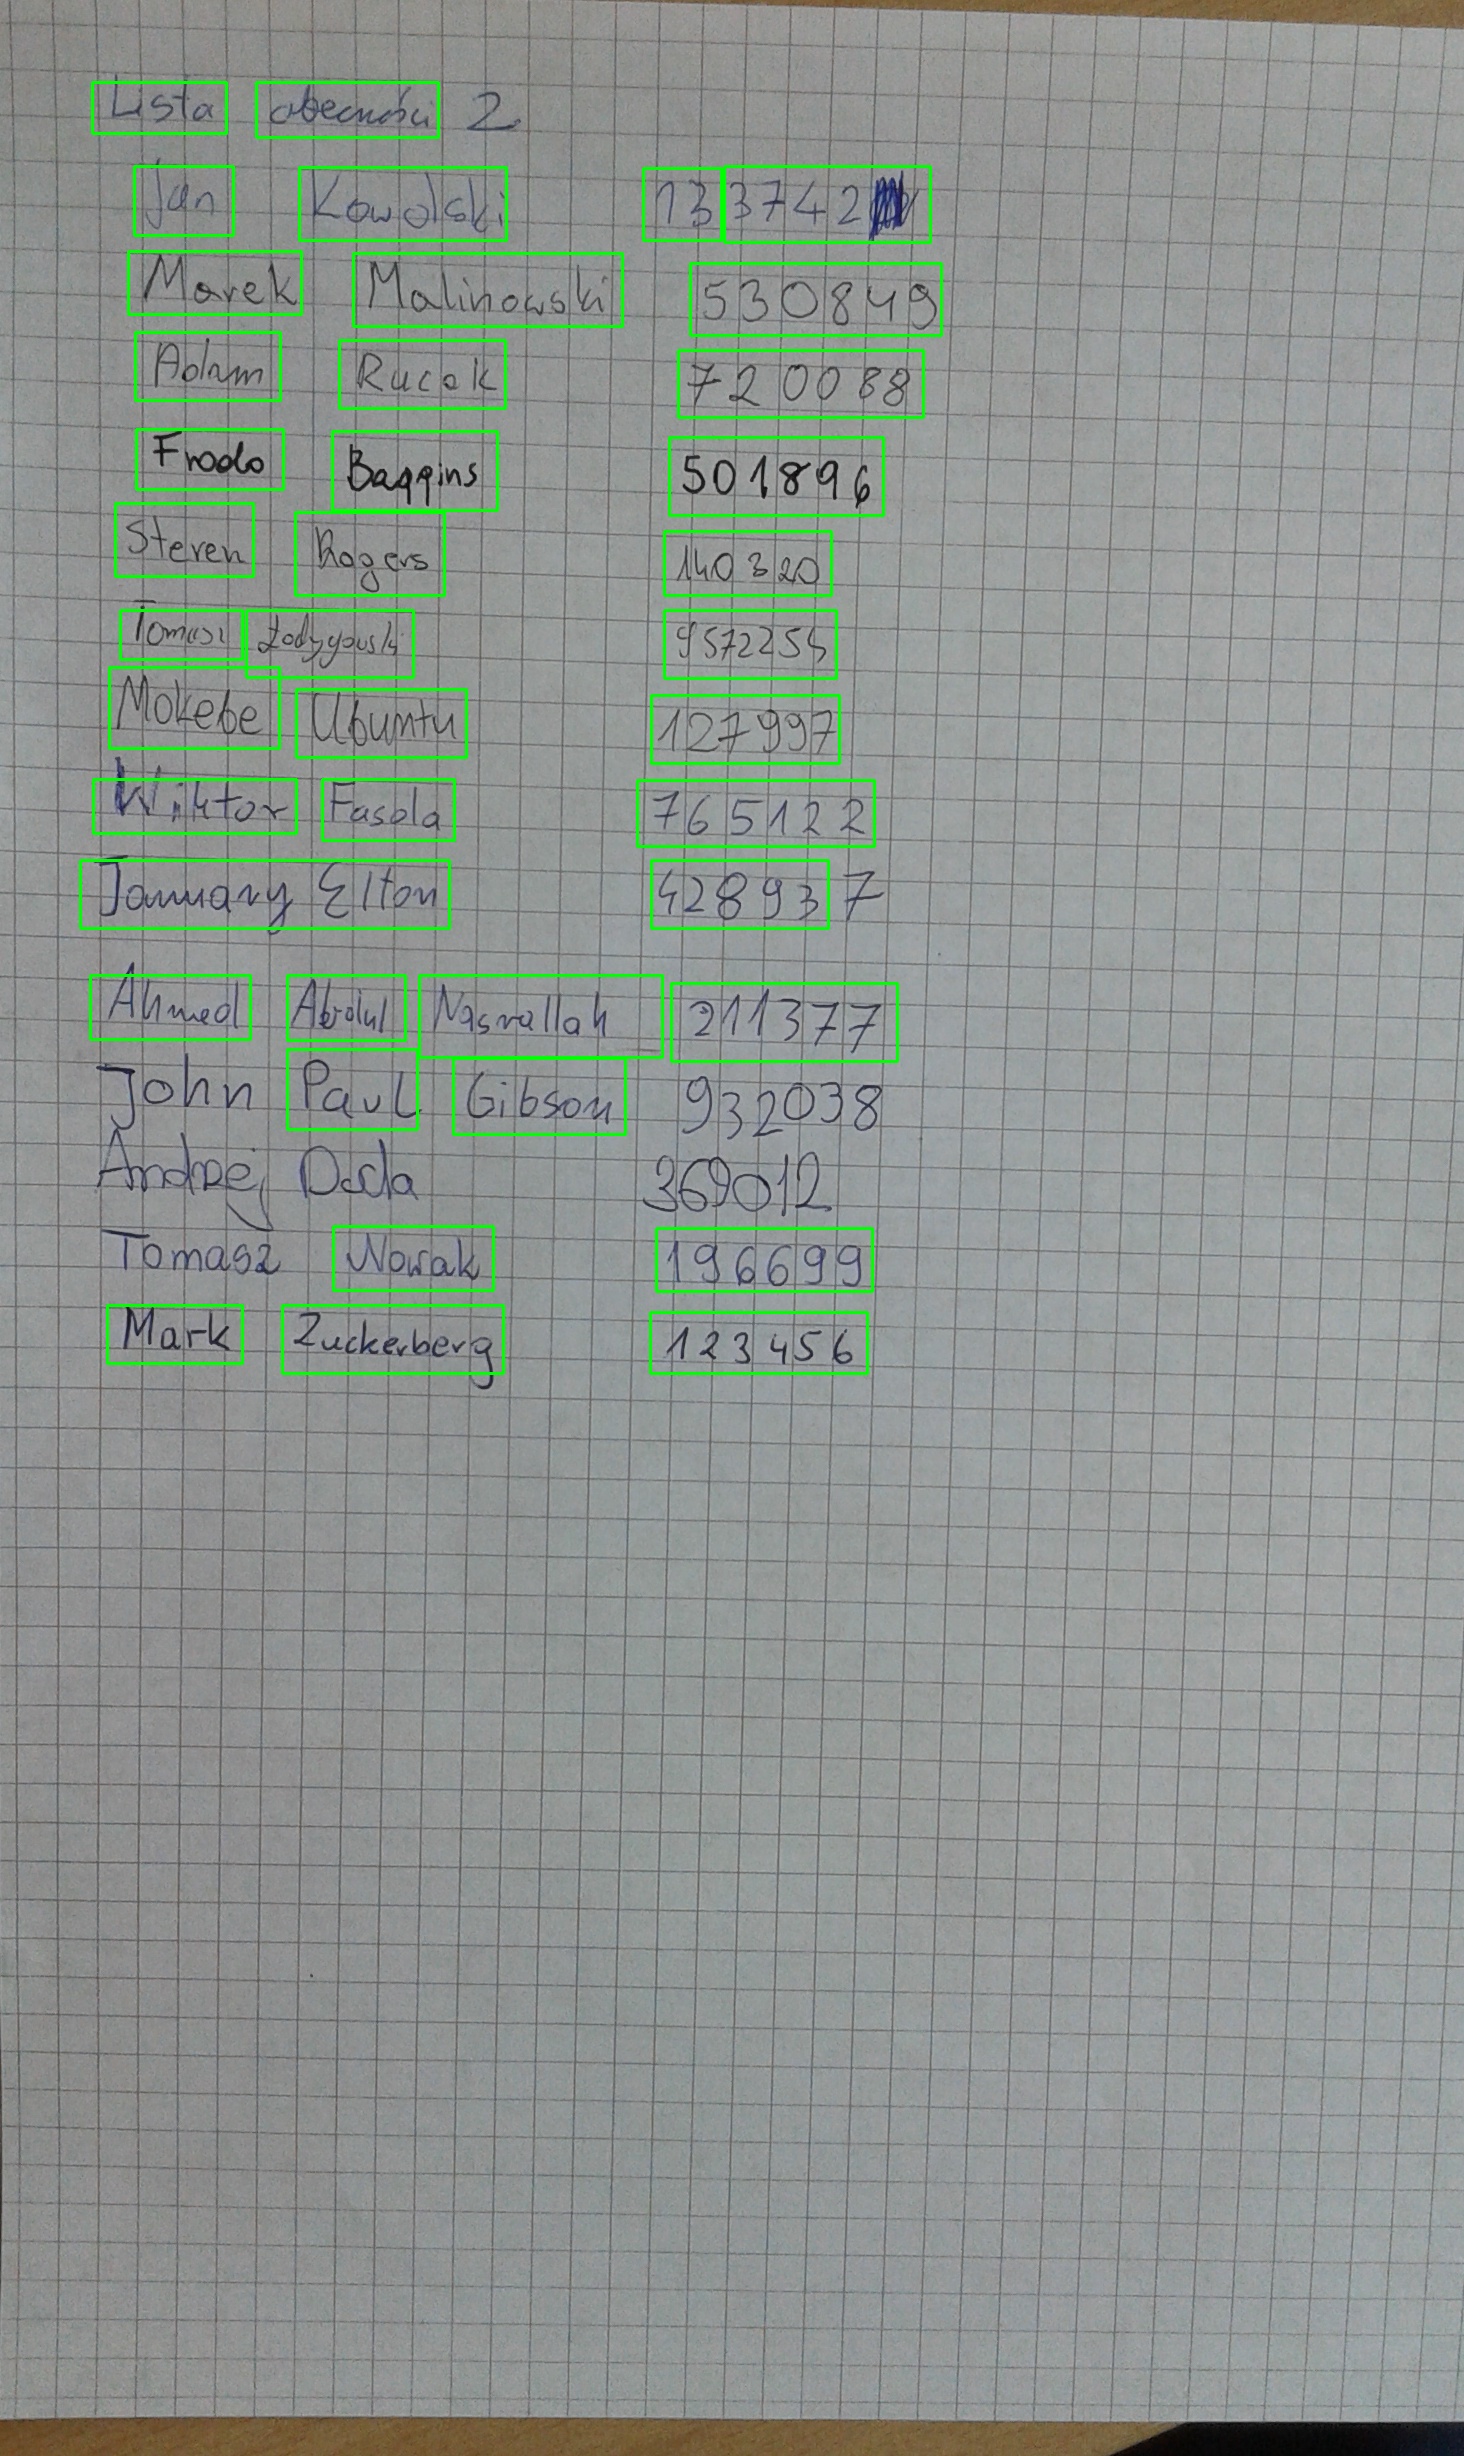 Lista obecności 2
Jan Kowalski 133742
Marek Malinowski 530849
Adam Rucak 720088
Frodo Baggins 501896
Steven Rogers 140320
Tomasz 9572254
Mokebe Ubuntu 127997
Wiktor Fasola 765122
January Elton 428937
Ahmed Abdul Nasrallah 211377
John Paul Gibson 932038
Andrzej Duda 369012
Tomasz Nowak 196699
Mark Zuckerberg 123456